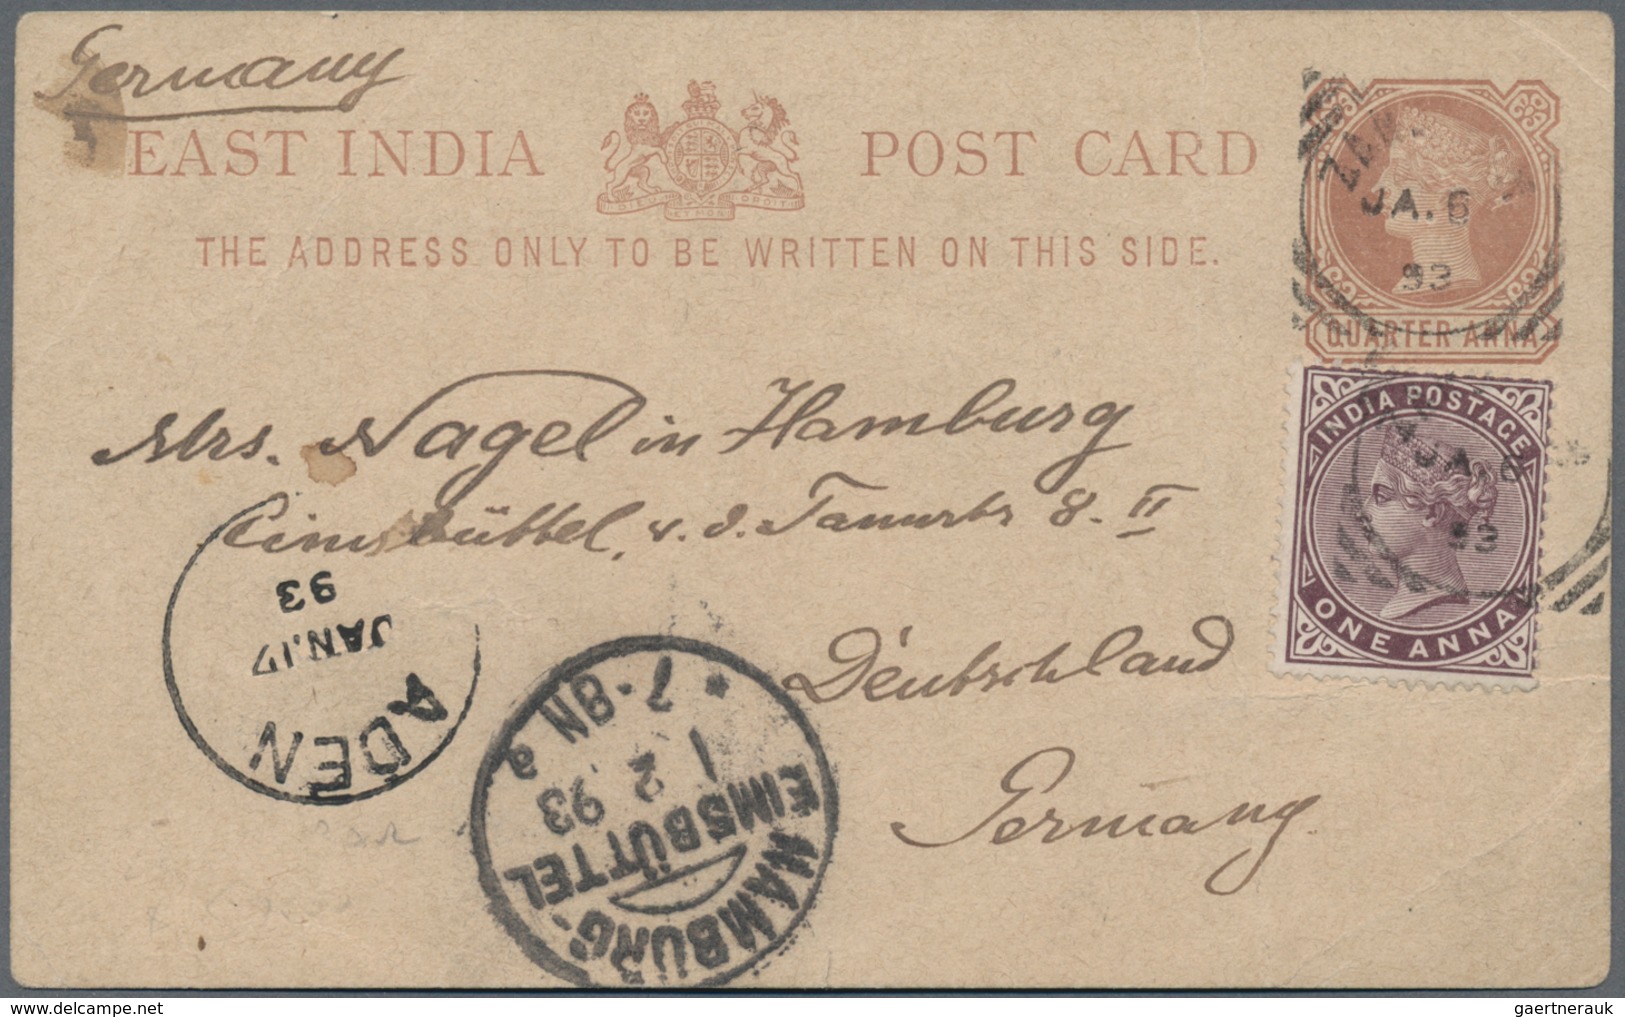 Germany
EAST INDIA POST CARD
DIEU ET MON DROIT
THE ADDRESS ONLY TO BE WRITTEN ON THIS SIDE.
JA. 6
93
QUARTER ANNA
INDIA POSTAGE
JA. 6
93
ONE ANNA
Mrs. Nagel in Hamburg
Eimsbüttel, v. d. 8. II
Deutschland
Germany.
ADEN
JAN. 17
93
HAMBURG-
EIMSBÜTTEL
1 2 93
7-8N a
gaertnerauk
delcampe.net